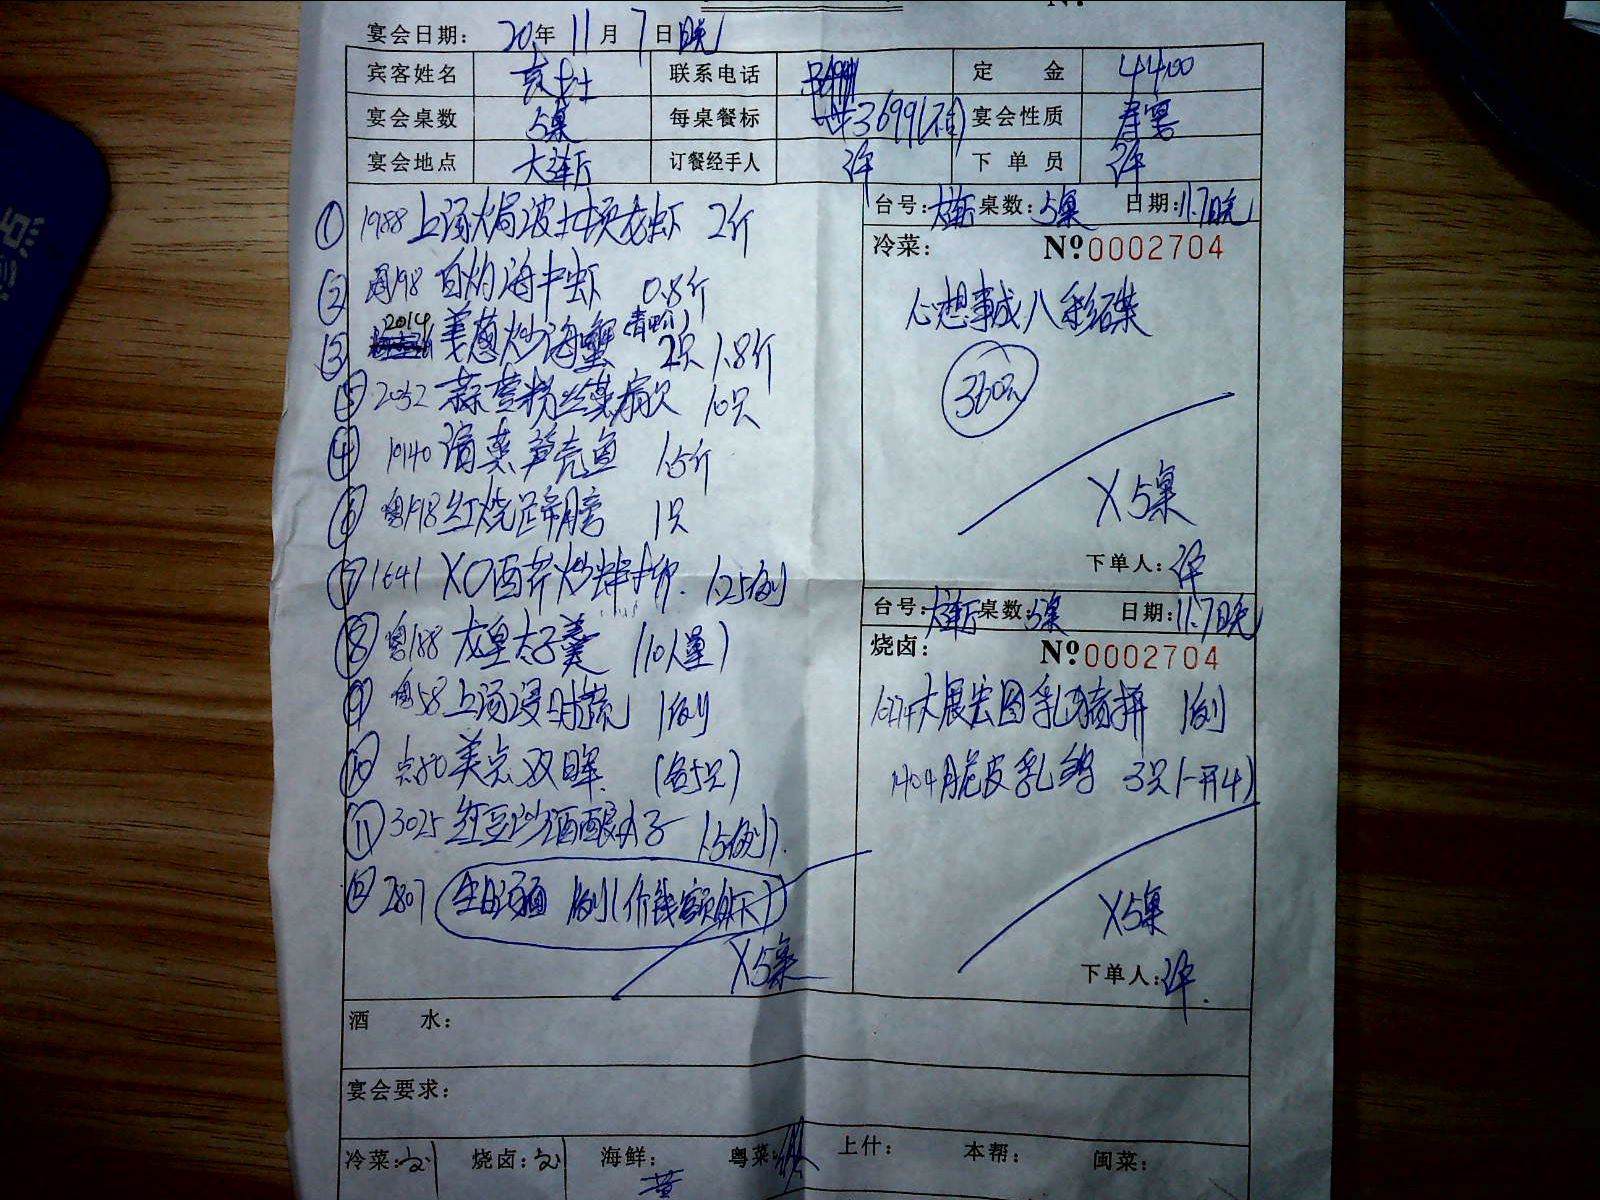 宴会日期: 20年 11月 7日晚
宾客姓名 联系电话 定 金 4400
宴会桌数 5桌 每桌餐标 3699 宴会性质
宴会地点 大连厅 订餐经手人 许 下 单 员 许
① 1988 上汤焗波士顿龙虾 2斤
② 粤198 白灼海中虾 0.8斤
③ 2014 姜葱炒海蟹 2只 1.8斤
⑤ 2032 蒜蓉粉丝蒸扇贝 10只
④ 10140 清蒸笋壳鱼 1.5斤
⑥ 粤198 红烧蹄膀 1只
⑦ 1641 XO西芹炒 1.25例
⑧ 粤188 龙皇太子羹 (10人量)
⑨ 粤58 上汤浸时蔬 1例
⑩ 点50 美点双晖 (各5只)
⑪ 3025 红豆沙酒酿丸子 1.5例
⑫ 2807 生日汤面 1例
X5桌
台号: 大连厅 桌数: 5桌 日期: 11.7晚
冷菜: Nº 0002704
心想事成八彩碟
360元
X5桌
下单人: 许
台号: 大连厅 桌数: 5桌 日期: 11.7晚
烧卤: Nº 0002704
大展宏图乳猪拼 1例
1404 脆皮乳鸽 3只(一开4)
X5桌
下单人: 许
酒 水:
宴会要求:
冷菜: 烧卤: 海鲜: 黄 粤菜: 上什: 本帮: 闽菜: